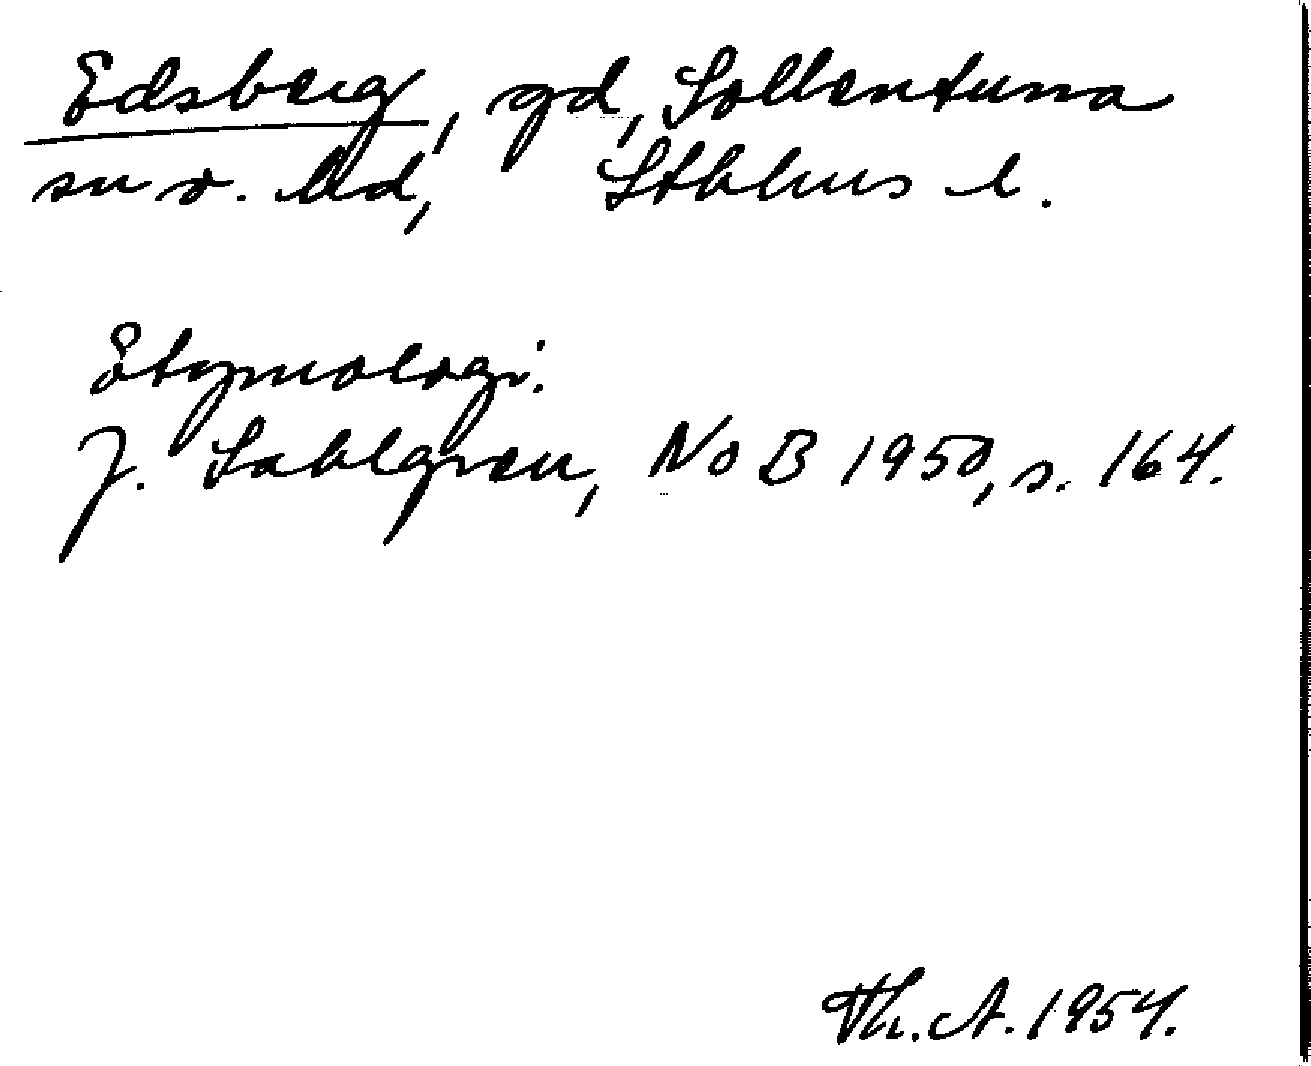 Edsberg, gd, Sollentuna
sn o. hd, Sthlms l.
Etymologi.
J. Sahlgren, NoB 1950, s. 164.
Th. A. 1954.